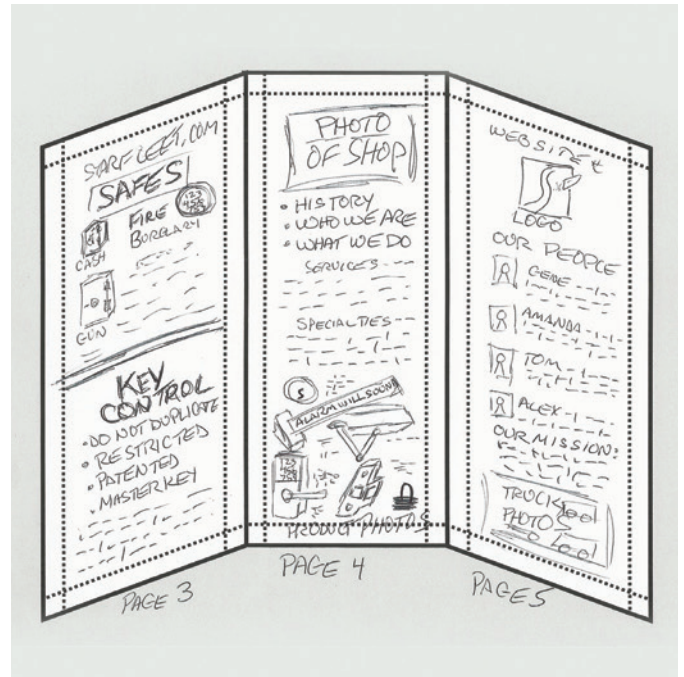 STARFLEET.COM
SAFES
FIRE
BURGLARY
123
CASH
GUN
KEY
CONTROL
• DO NOT DUPLICATE
• RESTRICTED
• PATENTED
• MASTERKEY
PAGE 3
PHOTO
OF SHOP
• HISTORY
• WHO WE ARE
• WHAT WE DO
SERVICES
SPECIALTIES
S
ALARM WILL SOUND
123
PRODUCT PHOTOS
PAGE 4
WEBSITE
S
LOGO
OUR PEOPLE
GENE
AMANDA
TOM
ALEX
OUR MISSION:
TRUCK
PHOTOS
PAGE 5